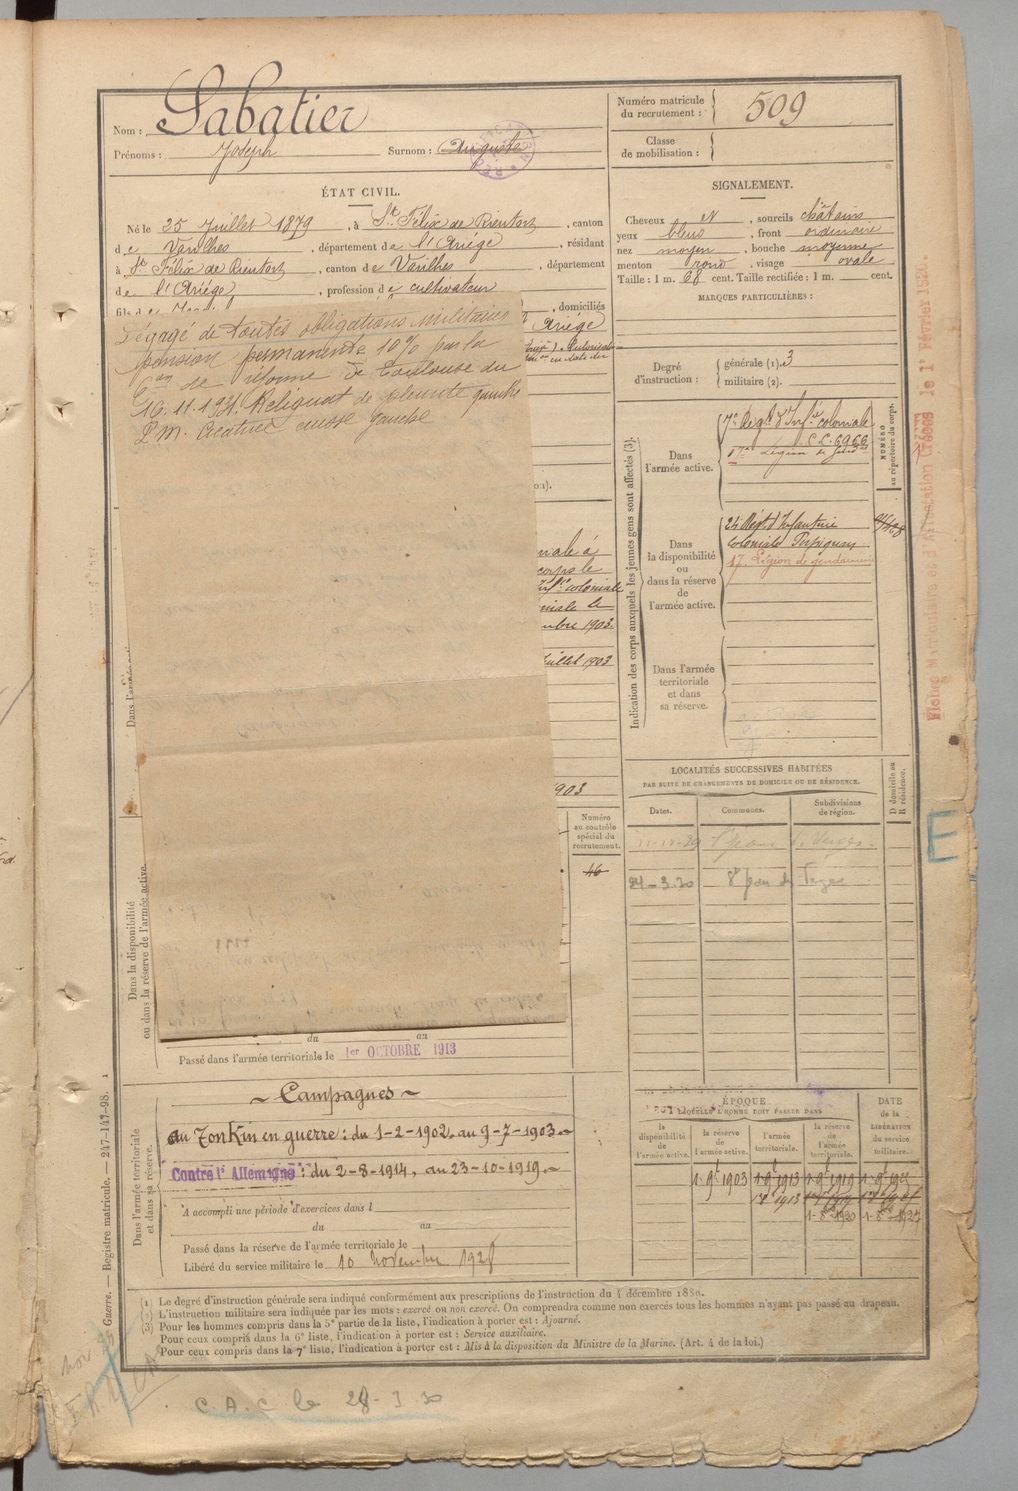 Nom : Sabatier
Prénoms : Joseph Surnom : Auguste
Numéro matricule
du recrutement : 509
Classe
de mobilisation :
ÉTAT CIVIL.
Né le 25 Juillet 1879, à St Félix de Rieutord, canton
de Varilhes, département de l'Ariège, résidant
à St Félix de Rieutord, canton de Varilhes, département
de l'Ariège, profession de cultivateur
, domiciliés
Ariège
SIGNALEMENT.
Cheveux N, sourcils châtains
yeux bleus, front ordinaire
nez moyen, bouche moyenne
menton rond, visage ovale
Taille : 1 m. 68 cent. Taille rectifiée : 1 m. cent.
MARQUES PARTICULIÈRES :
Degré
d'instruction :
générale (1). 3
militaire (2).
Dégagé de toutes obligations militaires
pension permanente 10% par la
Con de réforme de Toulouse du
16.11.1931. Reliquat de pleurite gauche
P.M. Cicatrice cuisse gauche
niale à
corps le
Infie coloniale
niale le
mbre 1903.
Juillet 1903
903
Indication des corps auxquels les jeunes gens sont affectés (3).
Dans
l'armée active.
7e Régt d'Infie coloniale
C.C. 6966
17e Légion de Gend
NUMÉRO
au répertoire du corps.
Dans
la disponibilité
ou
dans la réserve
de
l'armée active.
24 Régt d'Infanterie
coloniale Perpignan
17. Légion de gendarmerie
Dans l'armée
territoriale
et dans
sa réserve.
Fiches Matriculaire et d'Affectation créées le 1er Février 1926.
LOCALITÉS SUCCESSIVES HABITÉES
PAR SUITE DE CHANGEMENTS DE DOMICILE OU DE RÉSIDENCE.
Dates. Communes. Subdivisions
de région.
D domicile ou
R résidence.
24-3.30
E
Numéro
au contrôle
spécial du
recrutement.
46
Dans la disponibilité
ou dans la réserve de l'armée active.
du au
Passé dans l'armée territoriale le 1er OCTOBRE 1913
Dans l'armée territoriale
et dans sa réserve.
~ Campagnes ~
au Tonkin en guerre : du 1-2-1902, au 9-7-1903
Contre l'Allemagne : du 2-8-1914, au 23-10-1919
A accompli une période d'exercices dans l
du au
Passé dans la réserve de l'armée territoriale le
Libéré du service militaire le 10 novembre 1928
ÉPOQUE
À LAQUELLE L'HOMME DOIT PASSER DANS
DATE
de la
LIBÉRATION
du service
militaire.
la
disponibilité
de
l'armée active.
la réserve
de
l'armée active.
l'armée
territoriale.
la réserve
de
l'armée
territoriale.
1-9t 1903 1-9t 1913 1-9t 1919
1913
1-8-1920 1-8-1927
Guerre. — Registre matricule. — 247-147-98. 1
(1) Le degré d'instruction générale sera indiqué conformément aux prescriptions de l'instruction du 4 décembre 1889.
(2) L'instruction militaire sera indiquée par les mots : exercé ou non exercé. On comprendra comme non exercés tous les hommes n'ayant pas passé au drapeau.
(3) Pour les hommes compris dans la 5e partie de la liste, l'indication à porter est : Ajourné.
Pour ceux compris dans la 6e liste, l'indication à porter est : Service auxiliaire.
Pour ceux compris dans la 7e liste, l'indication à porter est : Mis à la disposition du Ministre de la Marine. (Art. 4 de la loi.)
C.A.C le 28-3 30